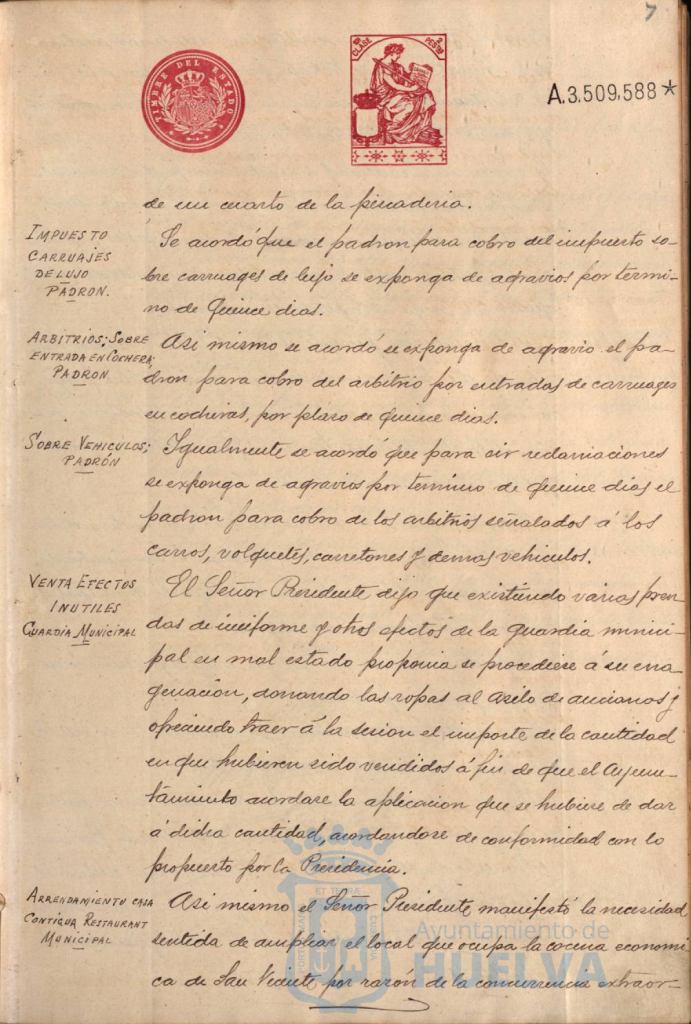 7
TIMBRE DEL ESTADO
CLASE 2 PESTAS
A.3.509.588*
de un cuarto de la pescaderia.
IMPUESTO
CARRUAJES
DE LUJO
PADRON.
Se acordó que el padron para cobro del impuesto so-
bre carruages de lujo se exponga de agravios por termi-
no de quince dias.
ARBITRIOS; SOBRE
ENTRADA EN COCHERA;
PADRON
Asi mismo se acordó se exponga de agravio el pa-
dron para cobro del arbitrio por entradas de carruages
en cocheras, por plazo de quince dias.
SOBRE VEHICULOS;
PADRÓN
Igualmente se acordó que para oir reclamaciones
se exponga de agravios por termino de quince dias el
padron para cobro de los arbitrios señalados á los
carros, volquetes, carretones y demas vehiculos.
VENTA EFECTOS
INUTILES
GUARDIA MUNICIPAL
El Señor Presidente dijo que existiendo varias pren-
das de uniforme y otros efectos de la guardia munici-
pal en mal estado proponia se procediese á su ena-
genacion, donando las ropas al Asilo de ancianos y
ofreciendo traer á la sesion el importe de la cantidad
en que hubieren sido vendidos á fin de que el Ayun-
tamiento acordase la aplicacion que se hubiere de dar
á dicha cantidad, acordandose de conformidad con lo
propuesto por la Presidencia.
ARRENDAMIENTO CASA
CONTIGUA RESTAURANT
MUNICIPAL
Asi mismo el Señor Presidente manifestó la necesidad
sentida de ampliar el local que ocupa la cocina economi-
ca de San Vicente por razón de la concurrencia extraor-
Ayuntamiento de
HUELVA